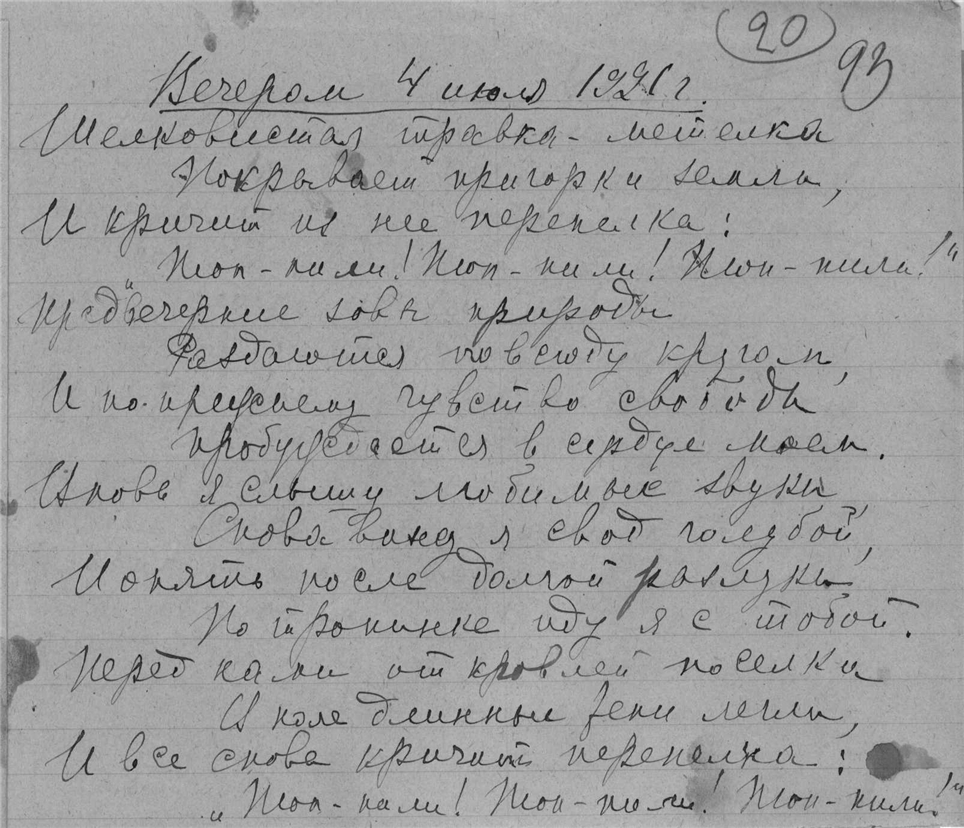 20
93
Вечером 4 июля 1921 г.
Шелковистая травка-метелка
Покрывает пригорки земли,
И кричит из нее перепелка:
„Пюп-пили! Пюп-пили! Пюп-пили!"
Предвечерние зовы природы
Раздаются повсюду кругом,
И по-прежнему чувство свободы
Пробуждается в сердце моем.
Вновь я слышу любимые звуки,
Снова вижу я свод голубой,
И опять после долгой разлуки
По тропинке иду я с тобой.
Перед нами от кровлей поселка
В поле длинные тени легли,
И все снова кричит перепелка:
„Пюп-пили! Пюп-пили! Пюп-пили!"